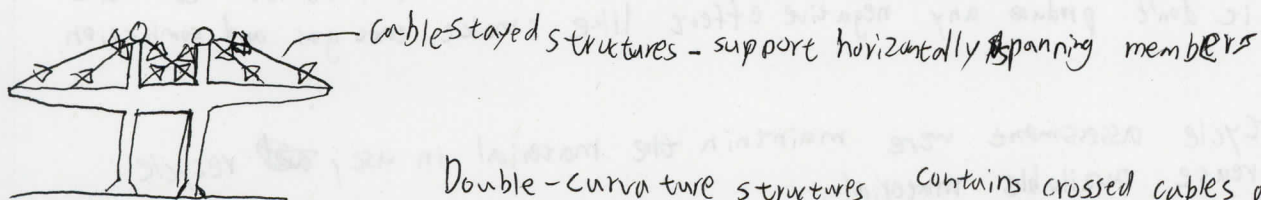 cable-stayed structures - support horizontally spanning members
Double-curvature structures contains crossed cables